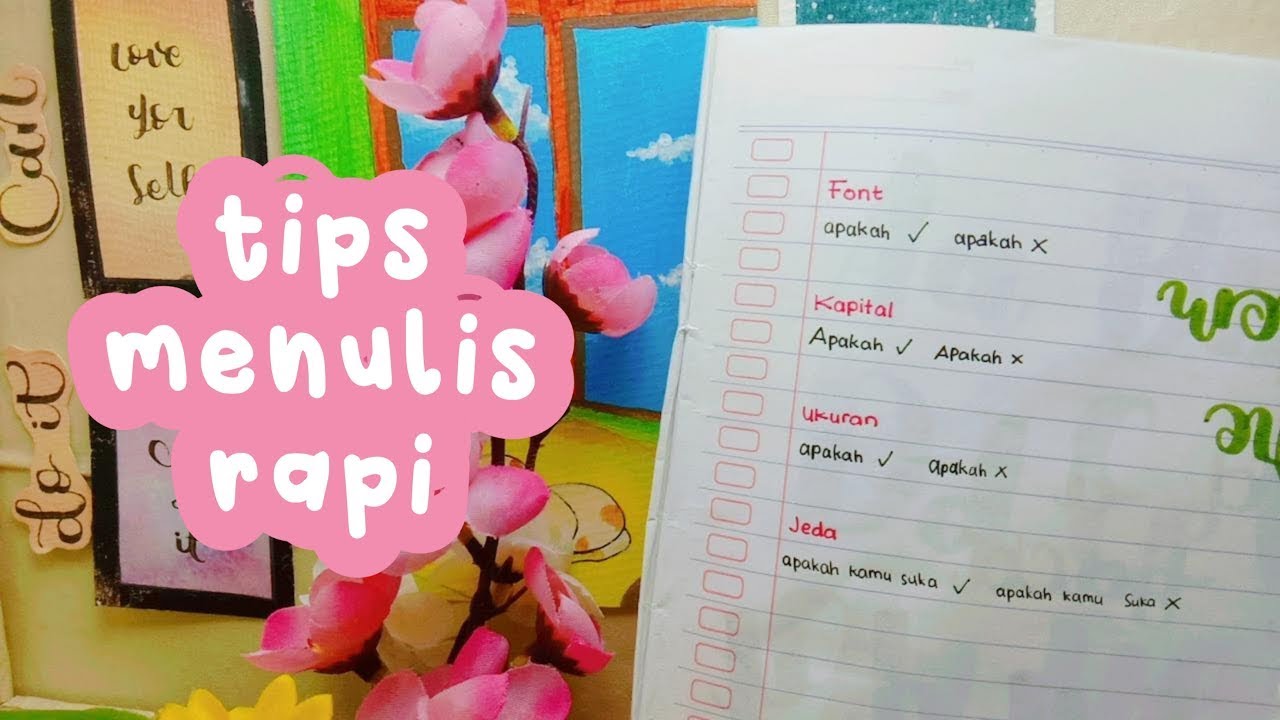 Can
do it
Love
Yor
Self
it
tips
menulis
rapi
Font
apakah ✓ apakah ×
Kapital
Apakah ✓ APakah ×
Ukuran
apakah ✓ apakah ×
Jeda
apakah kamu suka ✓ apakah kamu suka ×